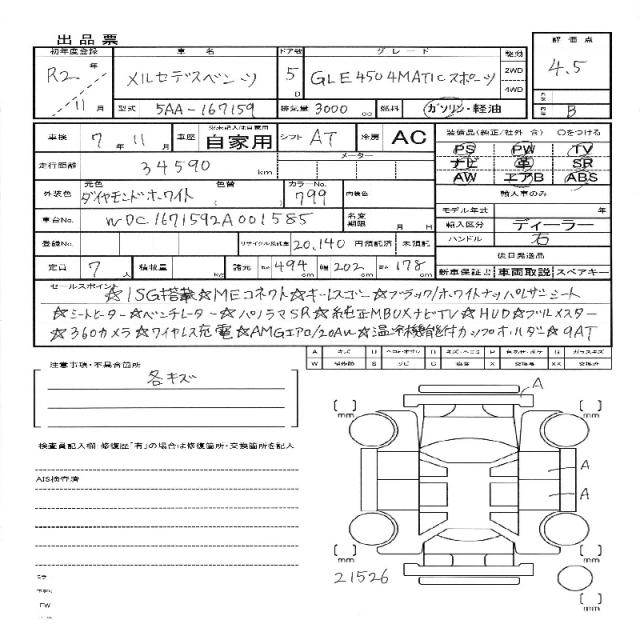 出品票
初年度登録 車名 ドア数 グレード 駆動 評価点
R2年 11月 メルセデスベンツ 5D GLE450 4MATICスポーツ 2WD 4WD 4.5
型式 5AA-167159 排気量 3000 cc 燃料 ガソリン・軽油 B
車検 7年11月 車歴 自家用 シフト AT 冷房 AC 装備品(純正/社外 含) ○をつける
PS PW TV
走行距離 34590 km メーター ナビ 革 SR
AW エアB ABS
外装色 元色 ダイヤモンドホワイト 色替 カラーNo. 799 内装色 輸入車のみ
モデル年式 年
車台No. WDC1671592A001585 名変期限 月 日 輸入区分 ディーラー
ハンドル 右
登録No. リサイクル預託金 20,140 円預託済 未預託 後日発送品
定員 7人 積載量 kg 諸元 長さ 494cm 幅 202cm 高さ 178cm 新車保証書 車両取説 スペアキー
セールスポイント ☆ISG搭載☆MEコネクト☆キーレスゴー☆ブラック/ホワイトナッパレザーシート
☆シートヒーター☆ベンチレーター☆パノラマSR☆純正MBUXナビTV☆HUD☆ブルメスター
☆360カメラ☆ワイヤレス充電☆AMGエアロ/20AW☆温冷機能付カップホルダー☆9AT
A キズ U B X 交換済 XX
W S C P
注意事項・不具合箇所
各キズ
検査員記入欄 修復歴「有」の場合は修復箇所・交換箇所を記入
AIS検査済
A
mm mm
A
A
mm mm
21526
mm